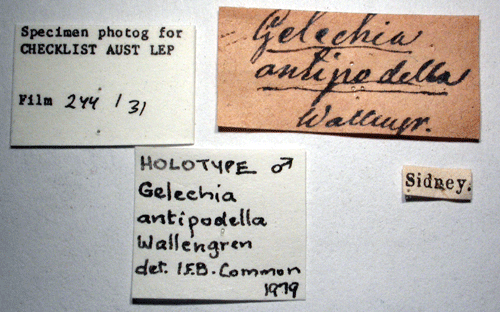 Specimen photog for
CHECKLIST AUST LEP
Film 244 / 31
Gelechia
antipodella
Wallengr.
HOLOTYPE ♂
Gelechia
antipodella
Wallengren
det. I.F.B. Common
1979
Sidney.